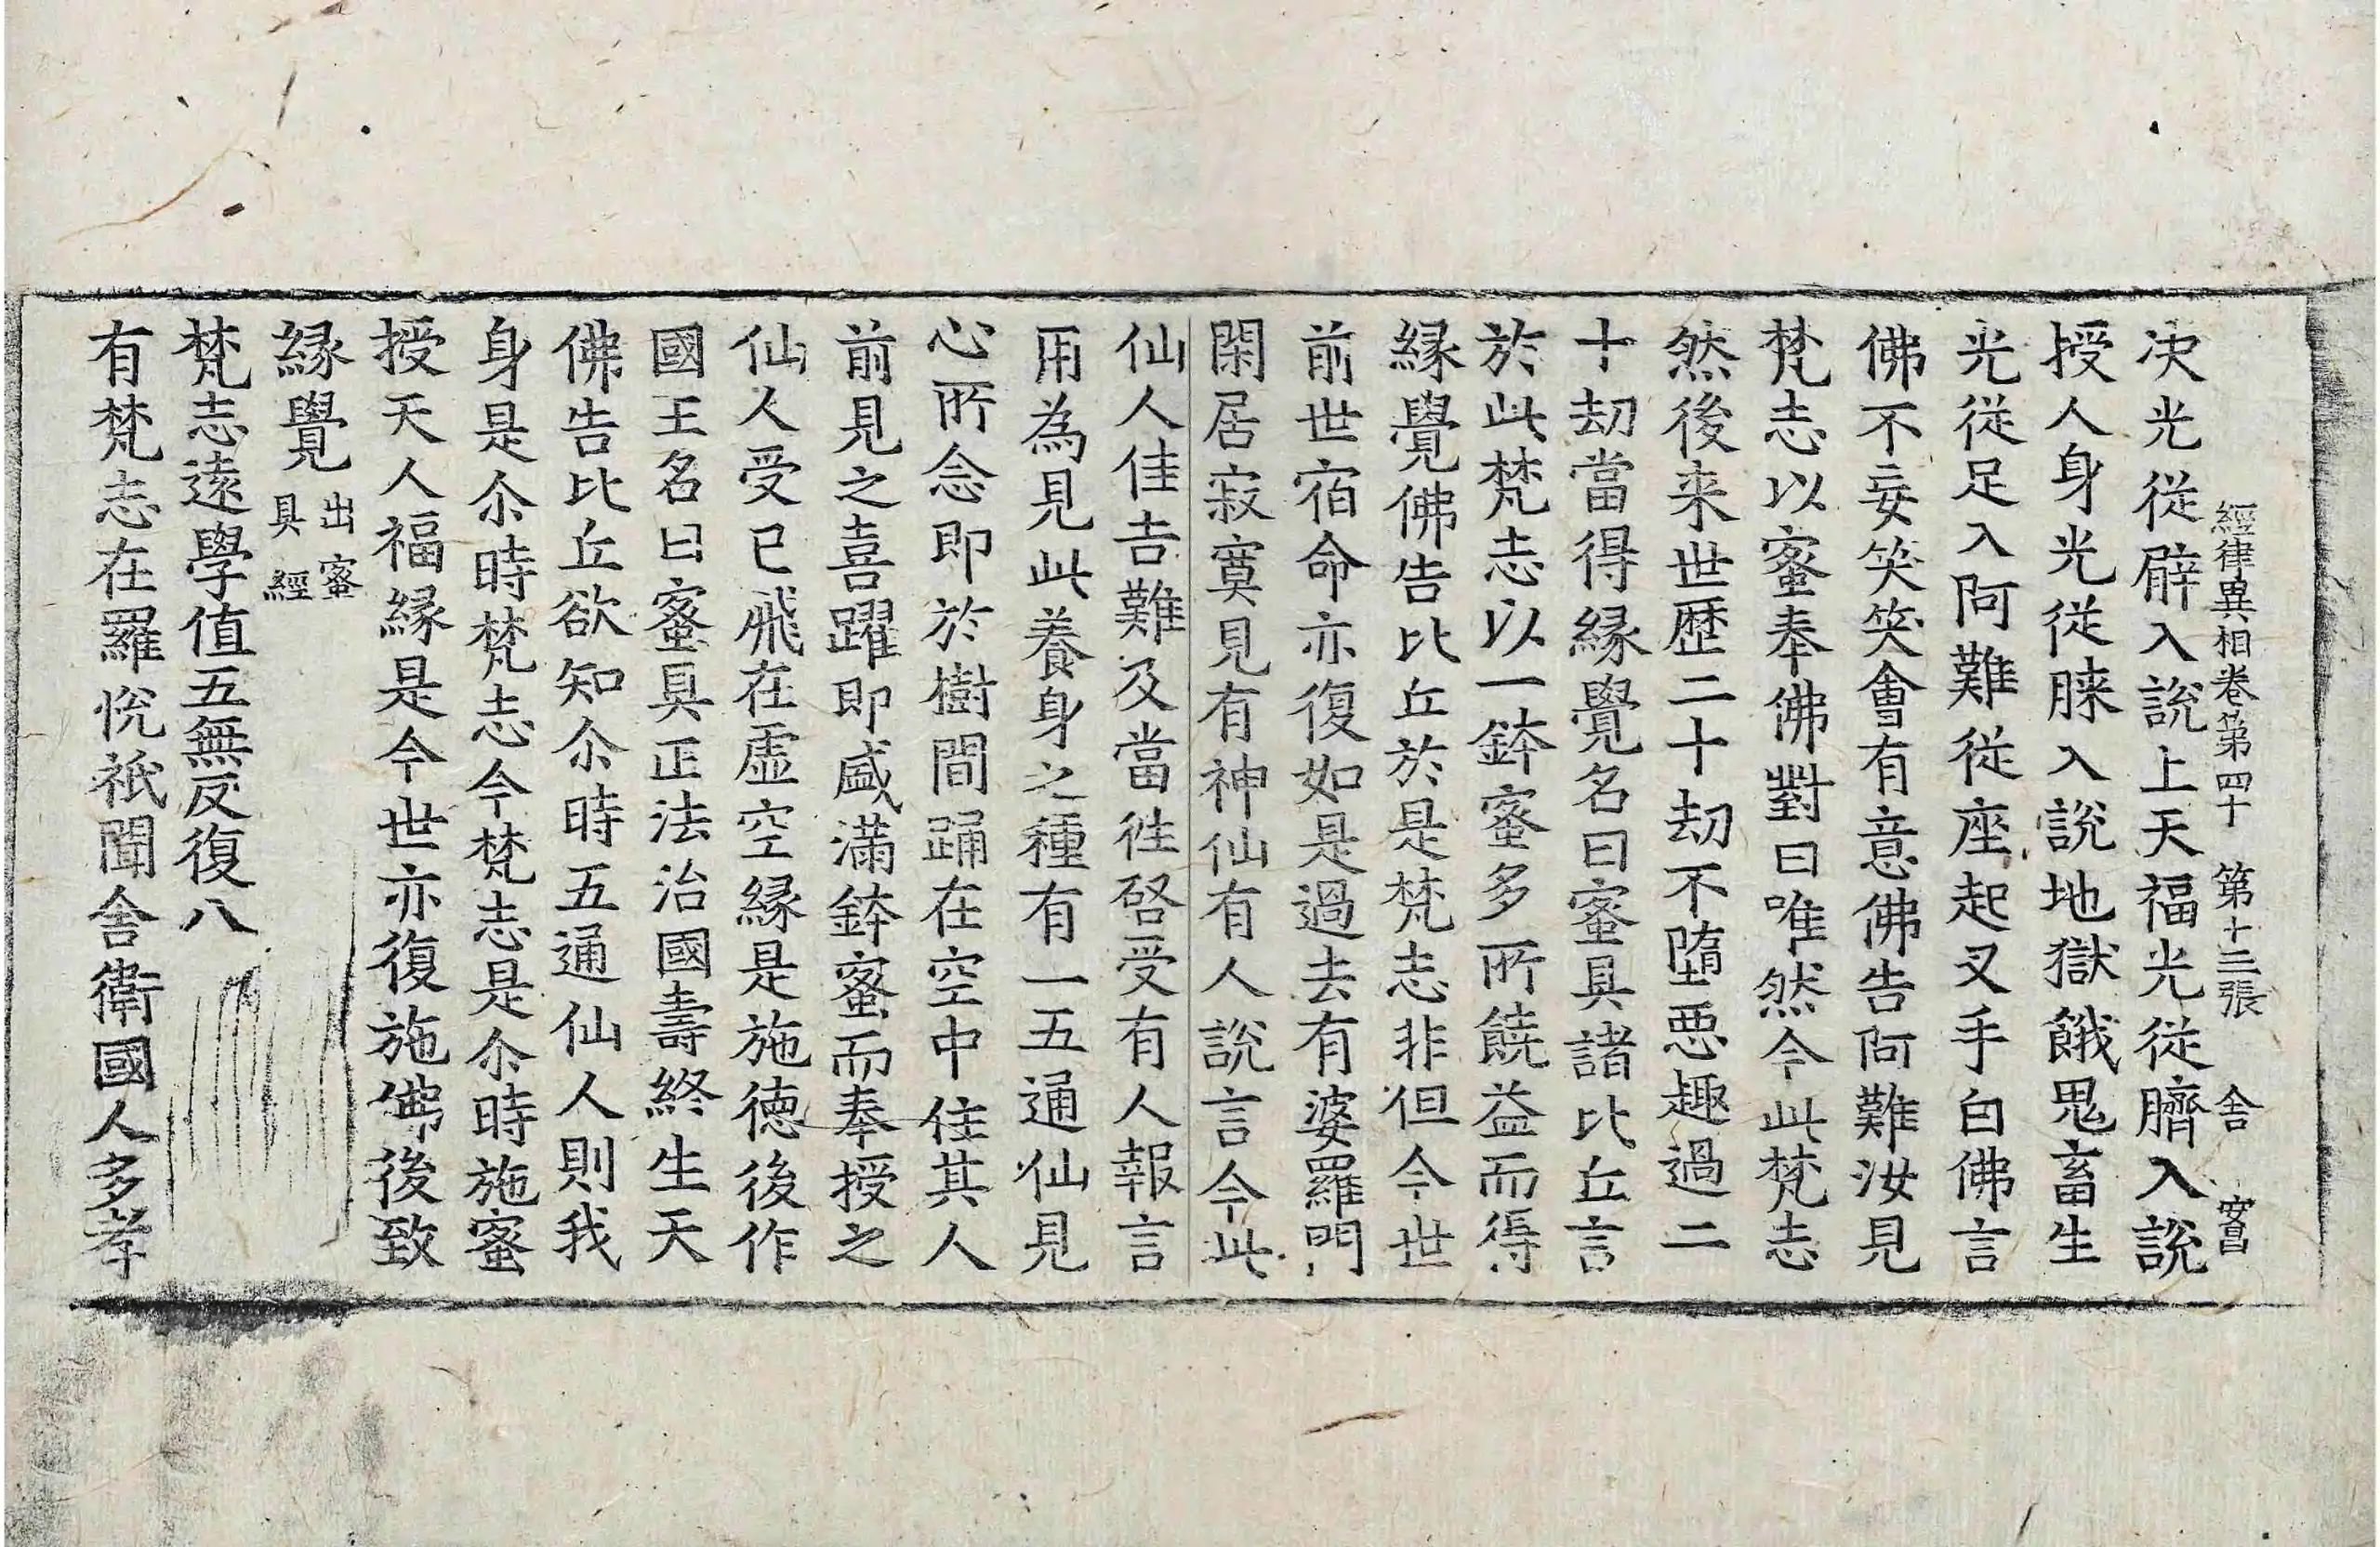 經律異相卷第四十　第十三張　舍　富昌
决光從臂入說上天福光從臍入說
授人身光從䏮入說地獄餓鬼畜生
光從足入阿難從座起叉手白佛言
佛不妄笑笑會有意佛告阿難汝見
梵志以蜜奉佛對曰唯然今此梵志
然後来世歷二十劫不墮惡趣過二
十劫當得縁覺名曰蜜具諸比丘言
於此梵志以一鉢蜜多所饒益而得
縁覺佛告比丘於是梵志非但今世
前世宿命亦復如是過去有婆羅門
閑居寂寞見有神仙有人說言今此
仙人佳吉難及當徃啓受有人報言
用為見此養身之種有一五通仙見
心所念即於樹間踊在空中住其人
前見之喜躍即盛滿鉢蜜而奉授之
仙人受已飛在虚空縁是施徳後作
國王名曰蜜具正法治國壽終生天
佛告比丘欲知尒時五通仙人則我
身是尒時梵志今梵志是尒時施蜜
授天人福縁是今世亦復施佛後致
縁覺出蜜具經
梵志遠學值五無反復八
有梵志在羅恱祇聞舍衛國人多孝